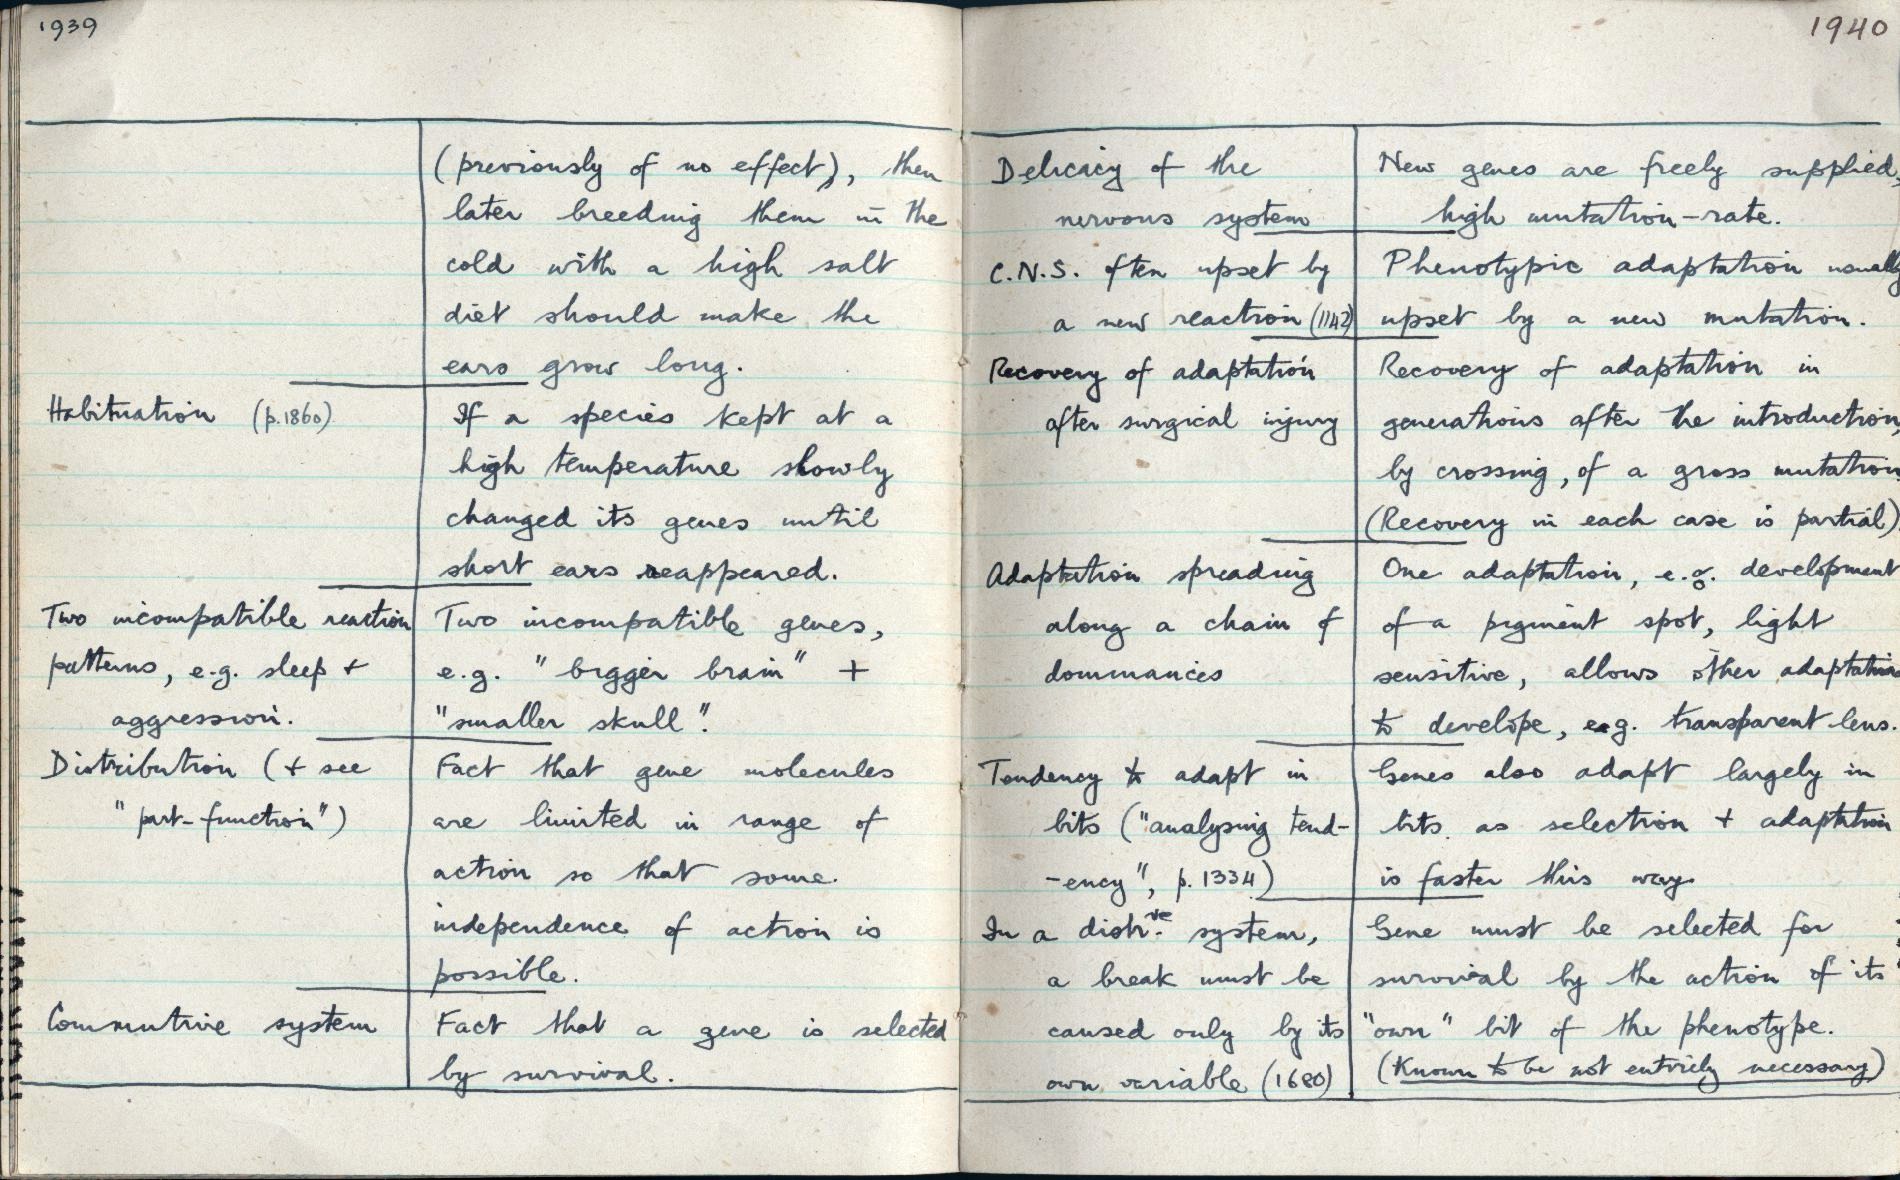 1939
(previously of no effect), then
later breeding them in the
cold with a high salt
diet should make the
ears grow long.
Habituation (p.1860)
If a species kept at a
high temperature slowly
changed its genes until
short ears reappeared.
Two incompatible reaction
patterns, e.g. sleep +
aggression.
Two incompatible genes,
e.g. "bigger brain" +
"smaller skull".
Distribution (+ see
"part-function")
Fact that gene molecules
are limited in range of
action so that some
independence of action is
possible.
Commutive system
Fact that a gene is selected
by survival.
1940
Delicacy of the
nervous system
New genes are freely supplied,
high mutation-rate.
C.N.S. often upset by
a new reaction (1142)
Phenotypic adaptation usually
upset by a new mutation.
Recovery of adaptation
after surgical injury
Recovery of adaptation in
generations after the introduction,
by crossing, of a gross mutation.
(Recovery in each case is partial)
Adaptation spreading
along a chain of
dominances
One adaptation, e.g. development
of a pigment spot, light
sensitive, allows other adaptations
to develope, e.g. transparent lens.
Tendency to adapt in
bits ("analysing tend-
-ency", p. 1334)
Genes also adapt largely in
bits as selection + adaptation
is faster this way.
In a distr.ve system,
a break must be
caused only by its
own variable (1680)
Gene must be selected for
survival by the action of its
"own" bit of the phenotype.
(Known to be not entirely necessary)